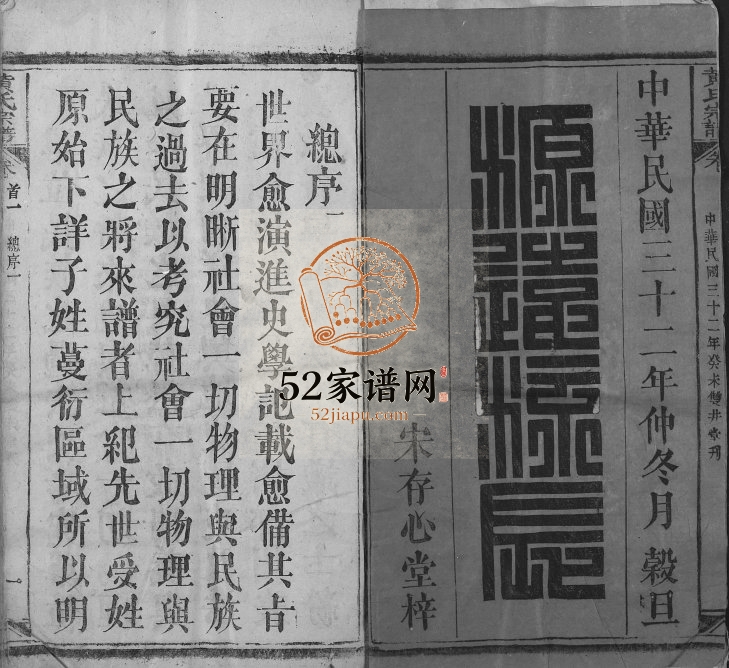 黃氏宗譜
中華民國三十二年癸未雙井堂刊
中華民國三十二年仲冬月 穀旦
源遠流長
宋存心堂梓
總序一
世界愈演進史學記載愈備其旨
要在明晰社會一切物理與民族
之過去以考究社會一切物理與
民族之將來譜者上紀先世受姓
原始下詳子姓蔓衍區域所以明
黃氏宗譜
卷首一 總序一
一
52家谱网
52jiapu.com